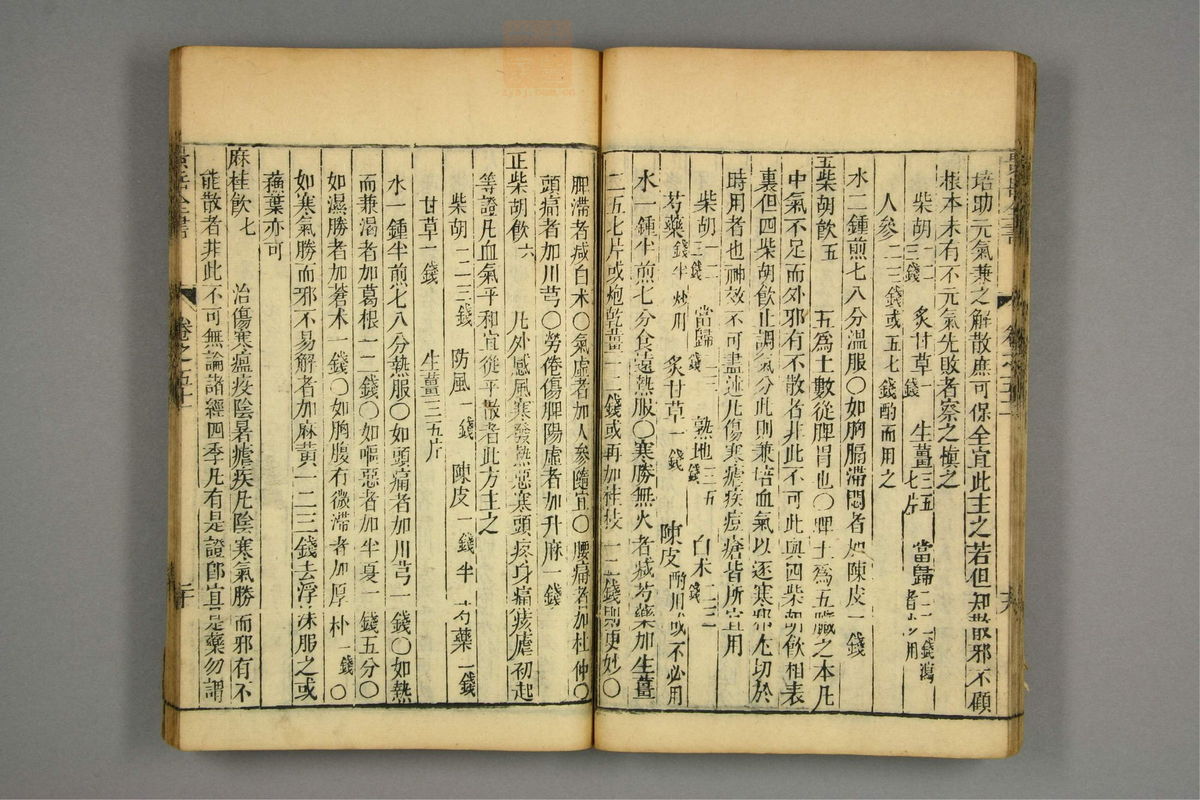 培助元氣兼之解散庶可保全宜此主之若但知散邪不顧
根本未有不元氣先敗者察之慎之
柴胡一二三錢 炙甘草一錢 生薑三五七片 當歸二三錢瀉者少用
人參二三錢或五七錢酌而用之
水二鍾煎七八分溫服○如胸膈滯悶者加陳皮一錢
五柴胡飲五 五爲土數從脾胃也○脾土爲五臟之本凡
中氣不足而外邪有不散者非此不可此與四柴胡飲相表
裏但四柴胡飲止調氣分此則兼培血氣以逐寒邪尤切於
時用者也神效不可盡述凡傷寒瘧疾痘瘡皆所宜用
柴胡一二三錢 當歸二三錢 熟地三五錢 白术二三錢
芍藥錢半炒用 炙甘草一錢 陳皮酌用或不必用
水一鍾半煎七分食遠熱服○寒勝無火者减芍藥加生薑
三五七片或炮乾薑一二錢或再加桂枝一二錢則更妙○
脾滯者减白术○氣虛者加人參隨宜○腰痛者加杜仲○
頭痛者加川芎○勞倦傷脾陽虛者加升麻一錢
正柴胡飲六 凡外感風寒發熱惡寒頭疼身痛痎瘧初起
等證凡血氣平和宜從平散者此方主之
柴胡一二三錢 防風一錢 陳皮一錢半 芍藥二錢
甘草一錢 生薑三五片
水一鍾半煎七八分熱服○如頭痛者加川芎一錢○如熱
而兼渴者加葛根一二錢○如嘔惡者加半夏一錢五分○
如濕勝者加蒼术一錢○如胸腹有微滯者加厚朴一錢○
如寒氣勝而邪不易解者加麻黃一二三錢去浮沫服之或
蘓葉亦可
麻桂飲七 治傷寒瘟疫陰暑瘧疾凡陰寒氣勝而邪有不
能散者非此不可無論諸經四季凡有是證卽宜是藥勿謂
景岳全書
卷之五十一
二十